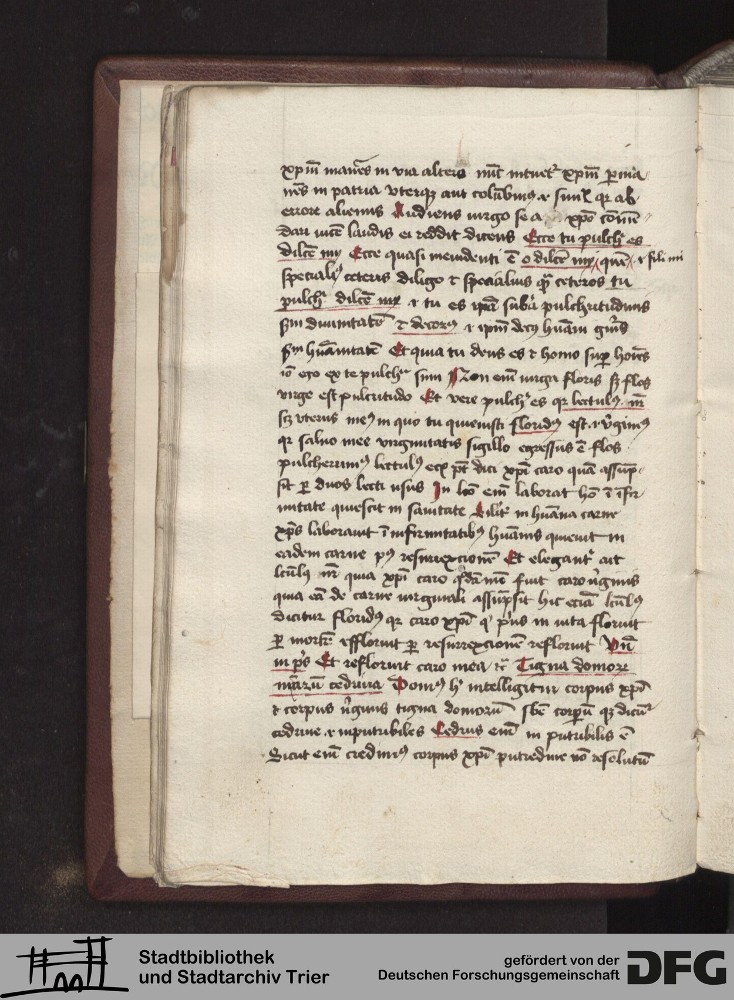 xpm manes in via alteri nunc intuet xpm pma
nes in patria vterqz aut columbinus .i. simlr qr ab
errore alienus Audiens virgo se a xpo comen
dari vice laudis ei reddit dicens Ecce tu pulchr es
dilce mi Ecce quasi meiudenti e o dilce mi quem .i. fili mi
specialr ceteris diligo et specialius qz ceteros tu
pulchr dilce mi .i. tu es ipa suba pulchritudinis
scdm diuinitate et decorus .i. ipm decus humani gnis
scdm humanitate Et quia tu deus es et homo super hoies
io ego ex te pulchra sum Non enim virga floris sz flos
virge est pulcritudo Et vere pulchr es qr lectulus nr
scz vterus meus in quo tu quieuisti floridus est .i. virgineus
qr saluo mee virginitatis sigillo egressus e flos
pulcherrimus lectulus ecia pt dici xpi caro qua assup
sit per duos lecti vsus In lecto enim laborat ho in infir
mitate quiescit in sanitate Silr in humana carne
xps laborauit in infirmitatibus humanis quieuit in
eadem carne post resurrexcione Et eleganter ait
lculus nr quia xpi caro quodamo fuit caro virginis
quia ea de carne virginali assupsit hic ecia lculus
dicitur floridus qr caro xpi q prius in vita floruit
per morte effloruit per resurrexcionem refloruit Vn
in ps Et refloruit caro mea etc Tigna domorum
nrarum cedrina Domus hic intelligitur corpus xpi
et corpus virginis tigna domorum sbe corporum qz dicuntur
cedrine .i. inputribiles Cedrus enim inputribilis e
Sicut enim credimus corpus xpi putredine non resolutum
Stadtbibliothek
und Stadtarchiv Trier
gefördert von der
Deutschen Forschungsgemeinschaft
DFG